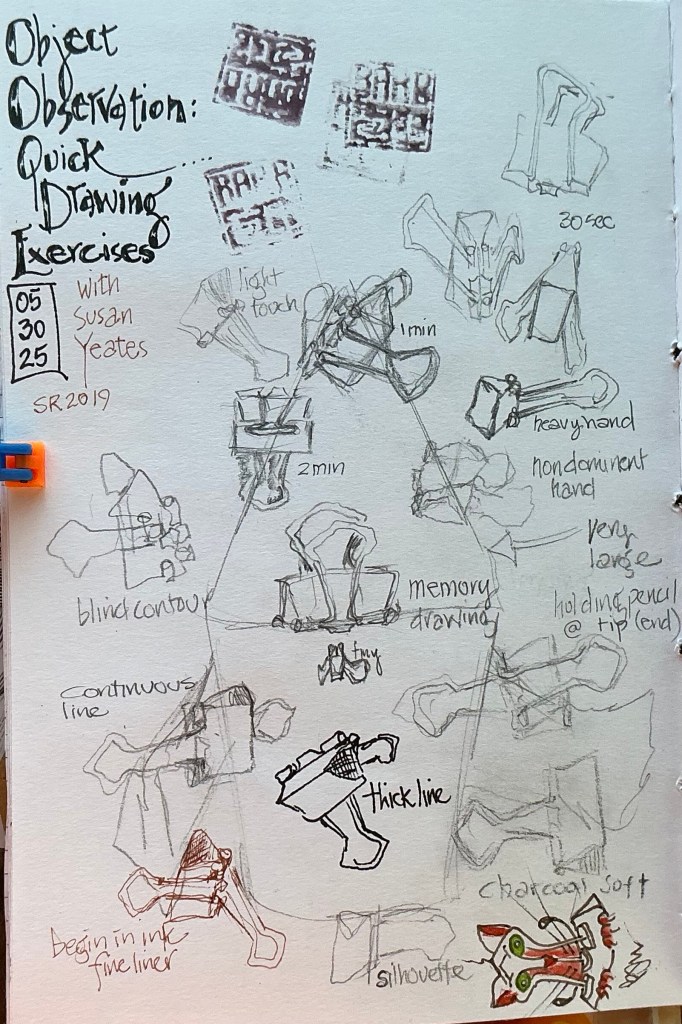 Object
Observation:
Quick...
Drawing
Exercises
05
30
25
with
Susan
Yeates
SR2019
30 sec
light
touch
1 min
heavy hand
2 min
nondominent
hand
very
large
blind contour
memory
drawing
holding pencil
@ tip (end)
tiny
continuous
line
thick line
charcoal soft
begin in ink
fineliner
silhouette